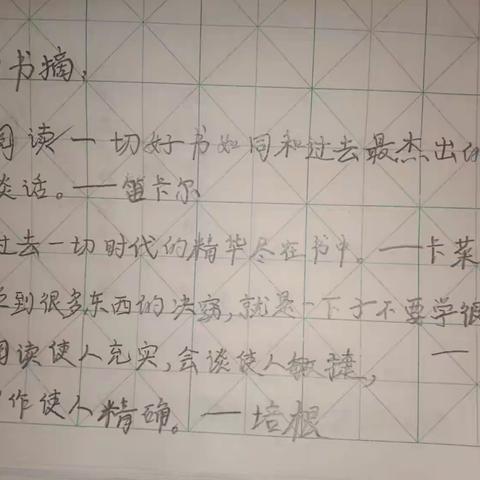 书摘:
阅读一切好书如同和过去最杰出的
谈话。——笛卡尔
过去一切时代的精华尽在书中。——卡莱
到很多东西的决窍,就是一下子不要学很
阅读使人充实,会谈使人敏捷, ——
作使人精确。——培根